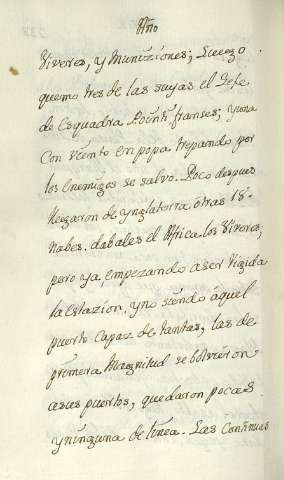 Año
Viveres, y Municiones; Luego
quemo tres de las suyas el Gefe
de Esquadra Pointi franses; y una
Con Viento en popa trepando por
los Enemigos se salvo. Poco despues
llegaron de ynglaterra otras 18
Nabes. dabales el Africa los Viveres,
pero ya, empezando a ser rigida
la Estazion, y no siendo aquel
puerto Capaz de tantas, las de
primera Magnitud se bolvieron
a sus puertos, quedaron pocas
y ninguna de linea. Las Continuas